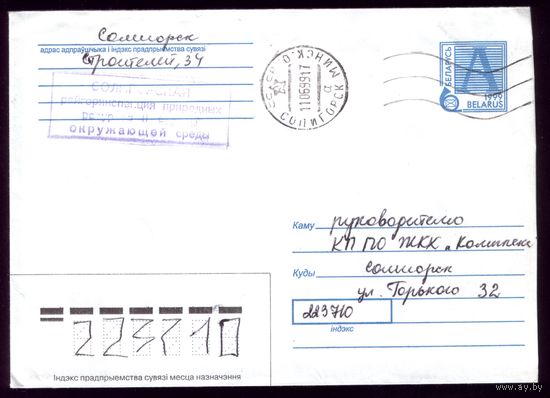 Солигорск
адрас адпраўшчыка і індэкс прадпрыемства сувязі
Строителей, 34
райгоринспекция природных
окружающей среды
МИНСК.О.
СОЛИГОРСК
11069917
а
БЕЛАРУСЬ
A
1999
BELARUS
Каму руководителю
КП ПО ЖКХ „Комплекс
Куды Солигорск
ул. Горького 32
223710
індэкс
223710
Індэкс прадпрыемства сувязі месца назначэння
www.ay.by